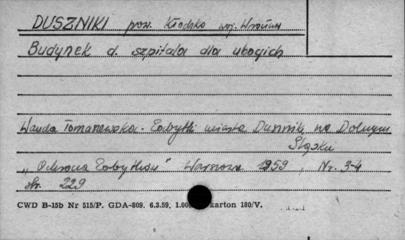 DUSZNIKI pow. Kłodzko woj. Wrocław
Budynek d. szpitala dla ubogich
Wanda Tomaszewska - Zabytki miasta Duszniki na Dolnym
Śląsku
"Ochrona Zabytków" Warszawa 1959, Nr. 3-4
str. 229
CWD B-15b Nr 515/P. GDA-809. 6.3.59. 1.000 karton 180/V.